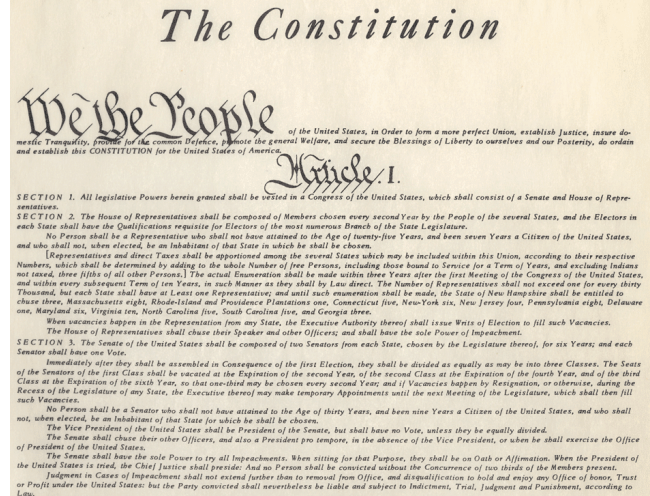 The Constitution
We the People of the United States, in Order to form a more perfect Union, establish Justice, insure do-
mestic Tranquility, provide for the common Defence, promote the general Welfare, and secure the Blessings of Liberty to ourselves and our Posterity, do ordain
and establish this CONSTITUTION for the United States of America.
Article I.
SECTION 1. All legislative Powers herein granted shall be vested in a Congress of the United States, which shall consist of a Senate and House of Repre-
sentatives.
SECTION 2. The House of Representatives shall be composed of Members chosen every second Year by the People of the several States, and the Electors in
each State shall have the Qualifications requisite for Electors of the most numerous Branch of the State Legislature.
No Person shall be a Representative who shall not have attained to the Age of twenty-five Years, and been seven Years a Citizen of the United States,
and who shall not, when elected, be an Inhabitant of that State in which he shall be chosen.
[Representatives and direct Taxes shall be apportioned among the several States which may be included within this Union, according to their respective
Numbers, which shall be determined by adding to the whole Number of free Persons, including those bound to Service for a Term of Years, and excluding Indians
not taxed, three fifths of all other Persons.] The actual Enumeration shall be made within three Years after the first Meeting of the Congress of the United States,
and within every subsequent Term of ten Years, in such Manner as they shall by Law direct. The Number of Representatives shall not exceed one for every thirty
Thousand, but each State shall have at Least one Representative; and until such enumeration shall be made, the State of New Hampshire shall be entitled to
chuse three, Massachusetts eight, Rhode-Island and Providence Plantations one, Connecticut five, New-York six, New Jersey four, Pennsylvania eight, Delaware
one, Maryland six, Virginia ten, North Carolina five, South Carolina five, and Georgia three.
When vacancies happen in the Representation from any State, the Executive Authority thereof shall issue Writs of Election to fill such Vacancies.
The House of Representatives shall chuse their Speaker and other Officers; and shall have the sole Power of Impeachment.
SECTION 3. The Senate of the United States shall be composed of two Senators from each State, chosen by the Legislature thereof, for six Years; and each
Senator shall have one Vote.
Immediately after they shall be assembled in Consequence of the first Election, they shall be divided as equally as may be into three Classes. The Seats
of the Senators of the first Class shall be vacated at the Expiration of the second Year, of the second Class at the Expiration of the fourth Year, and of the third
Class at the Expiration of the sixth Year, so that one-third may be chosen every second Year; and if Vacancies happen by Resignation, or otherwise, during the
Recess of the Legislature of any State, the Executive thereof may make temporary Appointments until the next Meeting of the Legislature, which shall then fill
such Vacancies.
No Person shall be a Senator who shall not have attained to the Age of thirty Years, and been nine Years a Citizen of the United States, and who shall
not, when elected, be an Inhabitant of that State for which he shall be chosen.
The Vice President of the United States shall be President of the Senate, but shall have no Vote, unless they be equally divided.
The Senate shall chuse their other Officers, and also a President pro tempore, in the absence of the Vice President, or when he shall exercise the Office
of President of the United States.
The Senate shall have the sole Power to try all Impeachments. When sitting for that Purpose, they shall be on Oath or Affirmation. When the President of
the United States is tried, the Chief Justice shall preside: And no Person shall be convicted without the Concurrence of two thirds of the Members present.
Judgment in Cases of Impeachment shall not extend further than to removal from Office, and disqualification to hold and enjoy any Office of honor, Trust
or Profit under the United States: but the Party convicted shall nevertheless be liable and subject to Indictment, Trial, Judgment and Punishment, according to
Law.